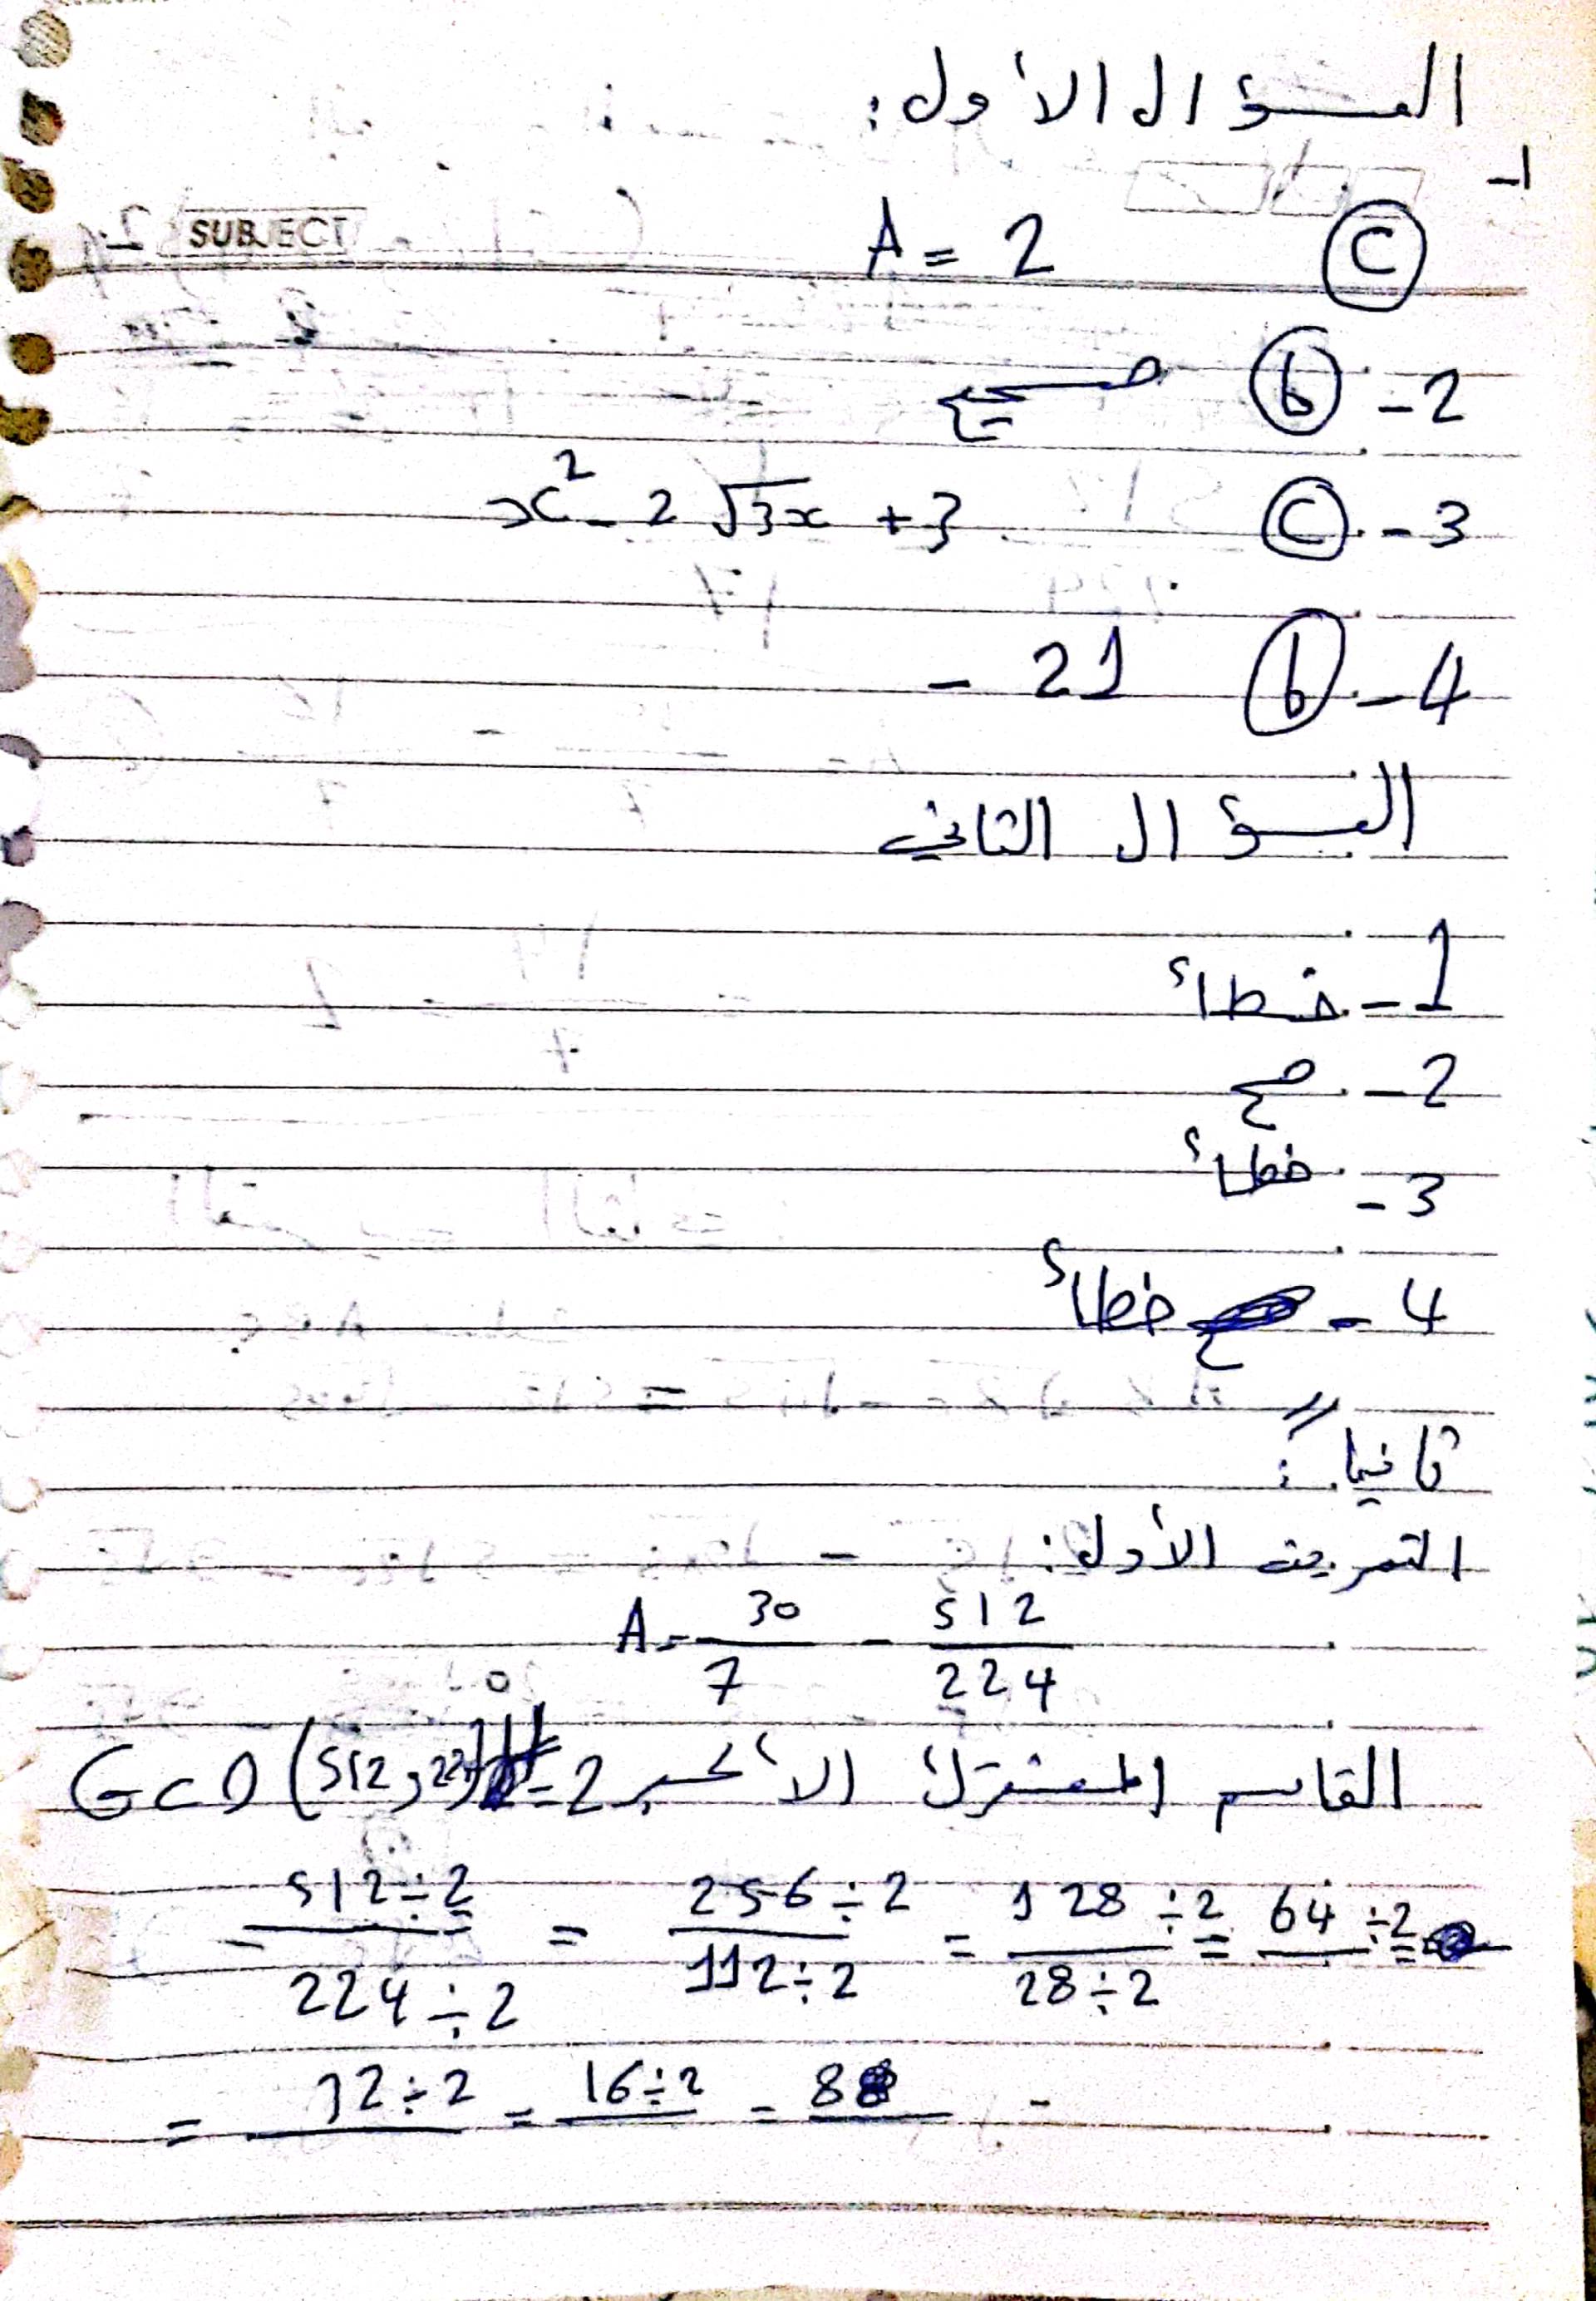 السؤال الأول:
SUBJECT
1-
C A = 2
2- b صحيح
3- C x² - 2√3x + 3
4- b - 21
السؤال الثاني
1- خطأ
2- صح
3- خطأ
4- خطأ
ثانياً:
التمرين الأول:
A = 30/7 - 512/224
القاسم المشترك الأكبر GCD (512, 224) = 2
= 512÷2 / 224÷2 = 256÷2 / 112÷2 = 128÷2 / 28÷2 = 64÷2 =
= 12÷2 = 16÷2 = 8 -